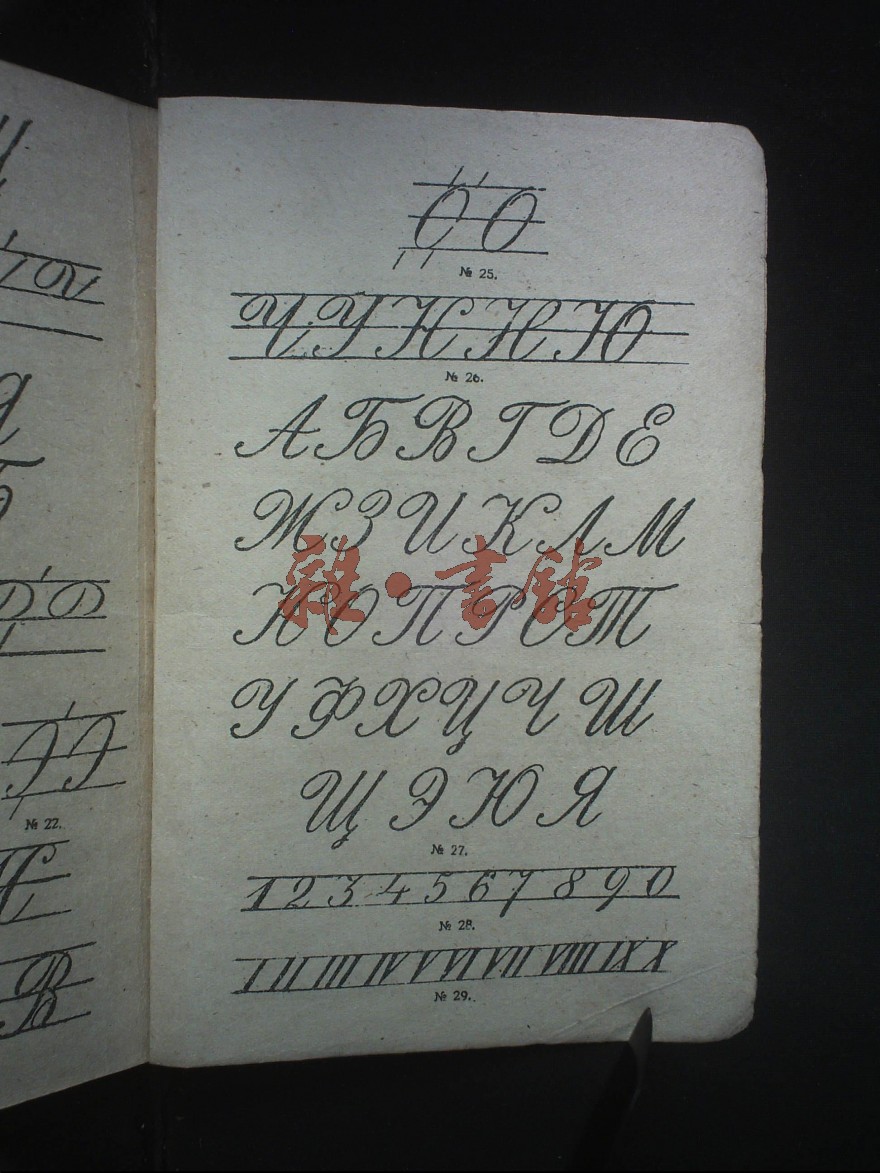 О О
№ 25.
Ч У Н Н Ю
№ 26.
А Б В Г Д Е
Ж З И К Л М
Н О П Р С Т
У Ф Х Ц Ч Ш
Щ Э Ю Я
№ 27.
1 2 3 4 5 6 7 8 9 0
№ 28.
I II III IV V VI VII VIII IX X
№ 29.
№ 22.
В